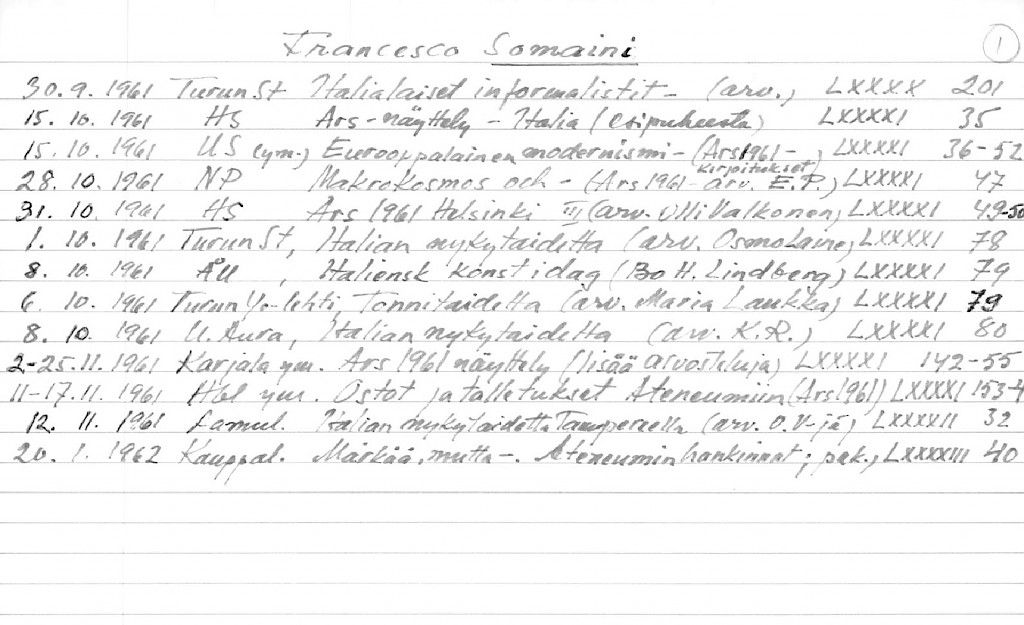 Francesco Somaini 1
30.9. 1961 TurunSt Italialaiset informalistit - (arv.) LXXXX 201
15. 10. 1961 HS Ars-näyttely - Italia (esipuheesta) LXXXXI 35
15. 10. 1961 US (ym.) Eurooppalainen modernismi - (Ars1961 - kirjoitukset) LXXXXI 36-52
28. 10. 1961 NP Makrokosmos och - (Ars 1961 - arv. E.P.) LXXXXI 47
31. 10. 1961 HS Ars 1961 Helsinki III (arv. Olli Valkonen) LXXXXI 49-50
1. 10. 1961 TurunSt, Italian nykytaidetta (arv. Osmo Laine) LXXXXI 78
8. 10. 1961 ÅU, Italiensk konst idag (Bo H. Lindberg) LXXXXI 79
6. 10. 1961 Turun Yo-lehti, Tonnitaidetta (arv. Maria Laukka) LXXXXI 79
8. 10. 1961 U. Aura, Italian nykytaidetta (arv. K.R.) LXXXXI 80
2-25.11. 1961 Karjala ym. Ars 1961 näyttely (lisää arvosteluja) LXXXXI 142-55
11-17.11. 1961 Hbl ym. Ostot ja talletukset Ateneumiin (Ars1961) LXXXXI 153-4
12. 11. 1961 Aamul. Italian nykytaidetta Tampereella (arv. O.V-jä) LXXXXII 32
20. 1. 1962 Kauppal. Märkää, mutta -. Ateneumin hankinnat; pak., LXXXXIII 40